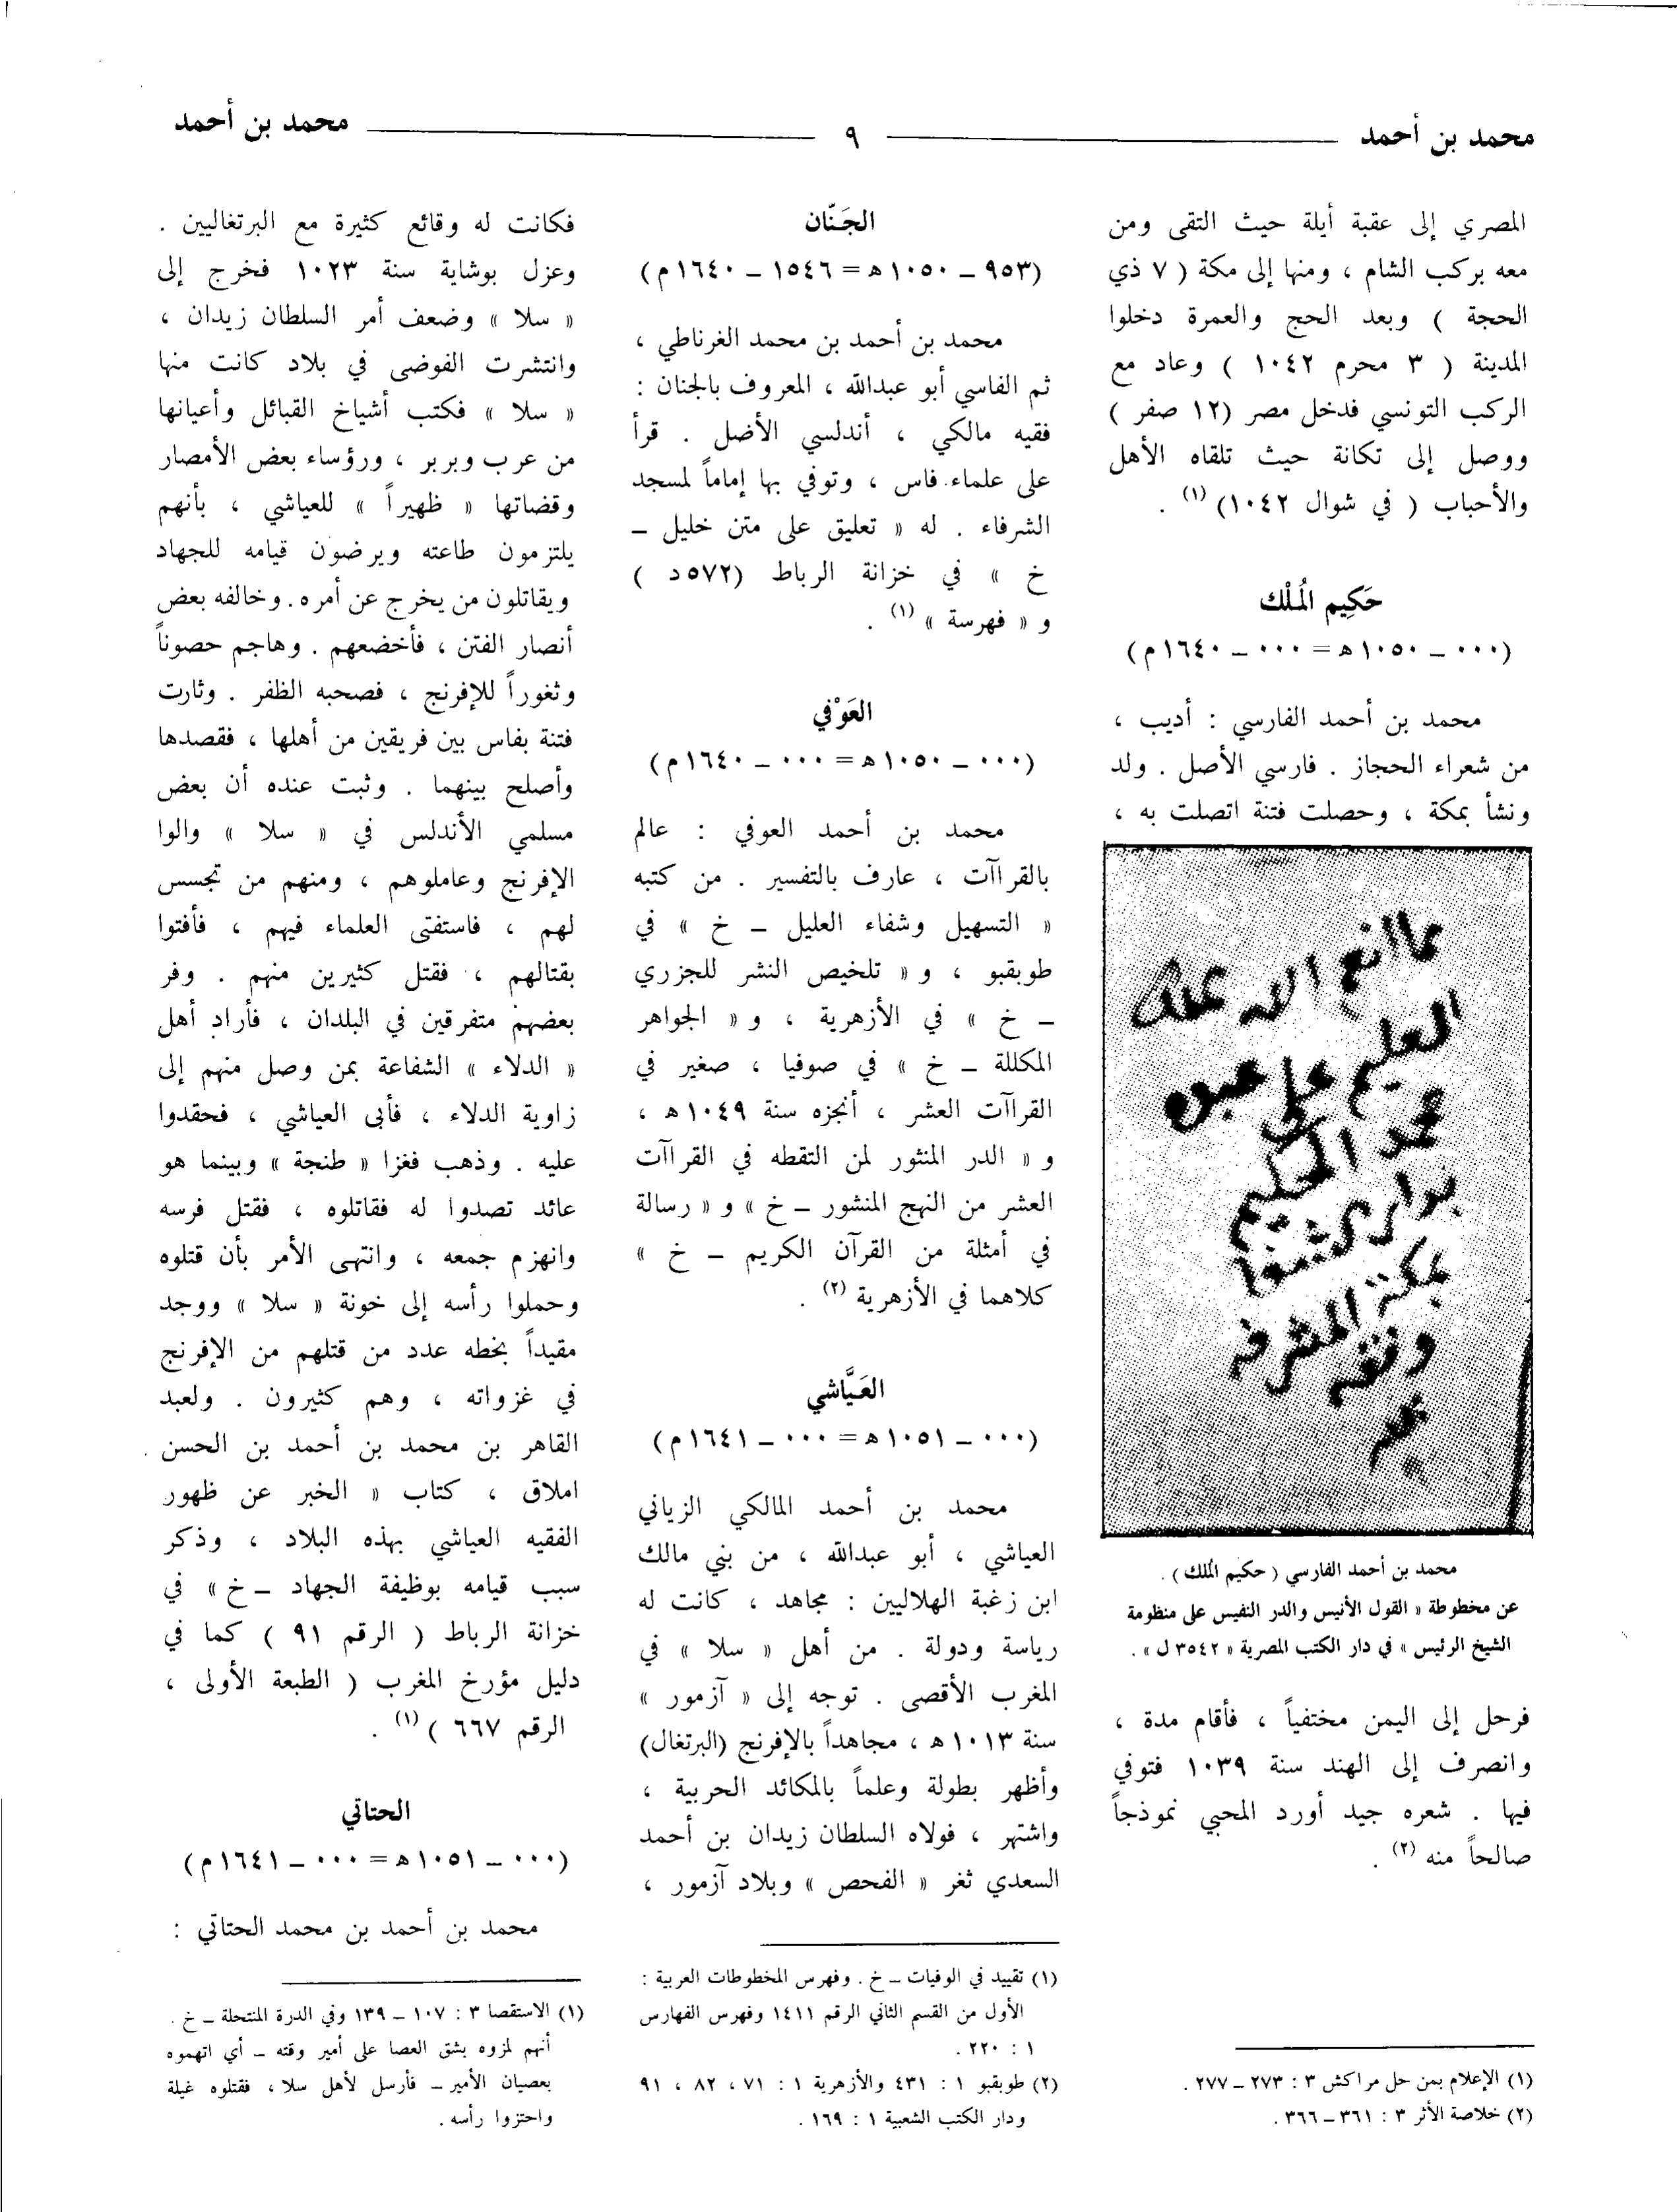 محمد بن أحمد
٩
محمد بن أحمد
المصري إلى عقبة أيلة حيث التقى ومن
معه بركب الشام ، ومنها إلى مكة ( ٧ ذي
الحجة ) وبعد الحج والعمرة دخلوا
المدينة ( ٣ محرم ١٠٤٢ ) وعاد مع
الركب التونسي فدخل مصر (١٢ صفر )
ووصل إلى تكانة حيث تلقاه الأهل
والأحباب ( في شوال ١٠٤٢) (١) .
حَكِيم المُلْك
(٠٠٠ ــ ١٠٥٠ هـ = ٠٠٠ ــ ١٦٤٠ م)
محمد بن أحمد الفارسي : أديب ،
من شعراء الحجاز . فارسي الأصل . ولد
ونشأ بمكة ، وحصلت فتنة اتصلت به ،
مما انعم الله الملك
العليم على عبده
محمد الحكيم
بمكة المشرفه
محمد بن أحمد الفارسي ( حكيم المُلك ) .
عن مخطوطة « القول الأنيس والدر النفيس على منظومة
الشيخ الرئيس » في دار الكتب المصرية « ٣٥٤٢ ل » .
فرحل إلى اليمن مختفياً ، فأقام مدة ،
وانصرف إلى الهند سنة ١٠٣٩ فتوفي
فيها . شعره جيد أورد المحبي نموذجاً
صالحاً منه (٢) .
(١) الإعلام بمن حل مراكش ٣ : ٢٧٣ ــ ٢٧٧ .
(٢) خلاصة الأثر ٣ : ٣٦١ ــ ٣٦٦ .
الجَنّان
(٩٥٣ ــ ١٠٥٠ هـ = ١٥٤٦ ــ ١٦٤٠ م)
محمد بن أحمد بن محمد الغرناطي ،
ثم الفاسي أبو عبدالله ، المعروف بالجنان :
فقيه مالكي ، أندلسي الأصل . قرأ
على علماء فاس ، وتوفي بها إماماً لمسجد
الشرفاء . له « تعليق على متن خليل ــ
خ » في خزانة الرباط (٥٧٢ د )
و « فهرسة » (١) .
العَوْفي
(٠٠٠ ــ ١٠٥٠ هـ = ٠٠٠ ــ ١٦٤٠ م)
محمد بن أحمد العوفي : عالم
بالقراآت ، عارف بالتفسير . من كتبه
« التسهيل وشفاء العليل ــ خ » في
طوبقبو ، و « تلخيص النشر للجزري
ــ خ » في الأزهرية ، و « الجواهر
المكللة ــ خ » في صوفيا ، صغير في
القراآت العشر ، أنجزه سنة ١٠٤٩ هـ ،
و « الدر المنثور لمن التقطه في القراآت
العشر من النهج المنشور ــ خ » و « رسالة
في أمثلة من القرآن الكريم ــ خ »
كلاهما في الأزهرية (٢) .
العَيَّاشي
(٠٠٠ ــ ١٠٥١ هـ = ٠٠٠ ــ ١٦٤١ م)
محمد بن أحمد المالكي الزياني
العياشي ، أبو عبدالله ، من بني مالك
ابن زغبة الهلاليين : مجاهد ، كانت له
رياسة ودولة . من أهل « سلا » في
المغرب الأقصى . توجه إلى « آزمور »
سنة ١٠١٣ هـ ، مجاهداً بالإفرنج (البرتغال)
وأظهر بطولة وعلماً بالمكائد الحربية ،
واشتهر ، فولاه السلطان زيدان بن أحمد
السعدي ثغر « الفحص » وبلاد آزمور ،
(١) تقييد في الوفيات ــ خ . وفهرس المخطوطات العربية :
الأول من القسم الثاني الرقم ١٤١١ وفهرس الفهارس
١ : ٢٢٠ .
(٢) طوبقبو ١ : ٤٣١ والأزهرية ١ : ٧١ ، ٨٢ ، ٩١
ودار الكتب الشعبية ١ : ١٦٩ .
فكانت له وقائع كثيرة مع البرتغاليين .
وعزل بوشاية سنة ١٠٢٣ فخرج إلى
« سلا » وضعف أمر السلطان زيدان ،
وانتشرت الفوضى في بلاد كانت منها
« سلا » فكتب أشياخ القبائل وأعيانها
من عرب وبربر ، ورؤساء بعض الأمصار
وقضاتها « ظهيراً » للعياشي ، بأنهم
يلتزمون طاعته ويرضون قيامه للجهاد
ويقاتلون من يخرج عن أمره . وخالفه بعض
أنصار الفتن ، فأخضعهم . وهاجم حصوناً
وثغوراً للإفرنج ، فصحبه الظفر . وثارت
فتنة بفاس بين فريقين من أهلها ، فقصدها
وأصلح بينهما . وثبت عنده أن بعض
مسلمي الأندلس في « سلا » والوا
الإفرنج وعاملوهم ، ومنهم من تجسس
لهم ، فاستفتى العلماء فيهم ، فأفتوا
بقتالهم ، فقتل كثيرين منهم . وفر
بعضهم متفرقين في البلدان ، فأراد أهل
« الدلاء » الشفاعة بمن وصل منهم إلى
زاوية الدلاء ، فأبى العياشي ، فحقدوا
عليه . وذهب فغزا « طنجة » وبينما هو
عائد تصدوا له فقاتلوه ، فقتل فرسه
وانهزم جمعه ، وانتهى الأمر بأن قتلوه
وحملوا رأسه إلى خونة « سلا » ووجد
مقيداً بخطه عدد من قتلهم من الإفرنج
في غزواته ، وهم كثيرون . ولعبد
القاهر بن محمد بن أحمد بن الحسن
املاق ، كتاب « الخبر عن ظهور
الفقيه العياشي بهذه البلاد ، وذكر
سبب قيامه بوظيفة الجهاد ــ خ » في
خزانة الرباط ( الرقم ٩١ ) كما في
دليل مؤرخ المغرب ( الطبعة الأولى ،
الرقم ٦٦٧ ) (١) .
الحتاتي
(٠٠٠ ــ ١٠٥١ هـ = ٠٠٠ ــ ١٦٤١ م)
محمد بن أحمد بن محمد الحتاتي :
(١) الاستقصا ٣ : ١٠٧ ــ ١٣٩ وفي الدرة المنتحلة ــ خ .
أنهم لمزوه بشق العصا على أمير وقته ــ أي اتهموه
بعصيان الأمير ــ فأرسل لأهل سلا ، فقتلوه غيلة
واحتزوا رأسه .